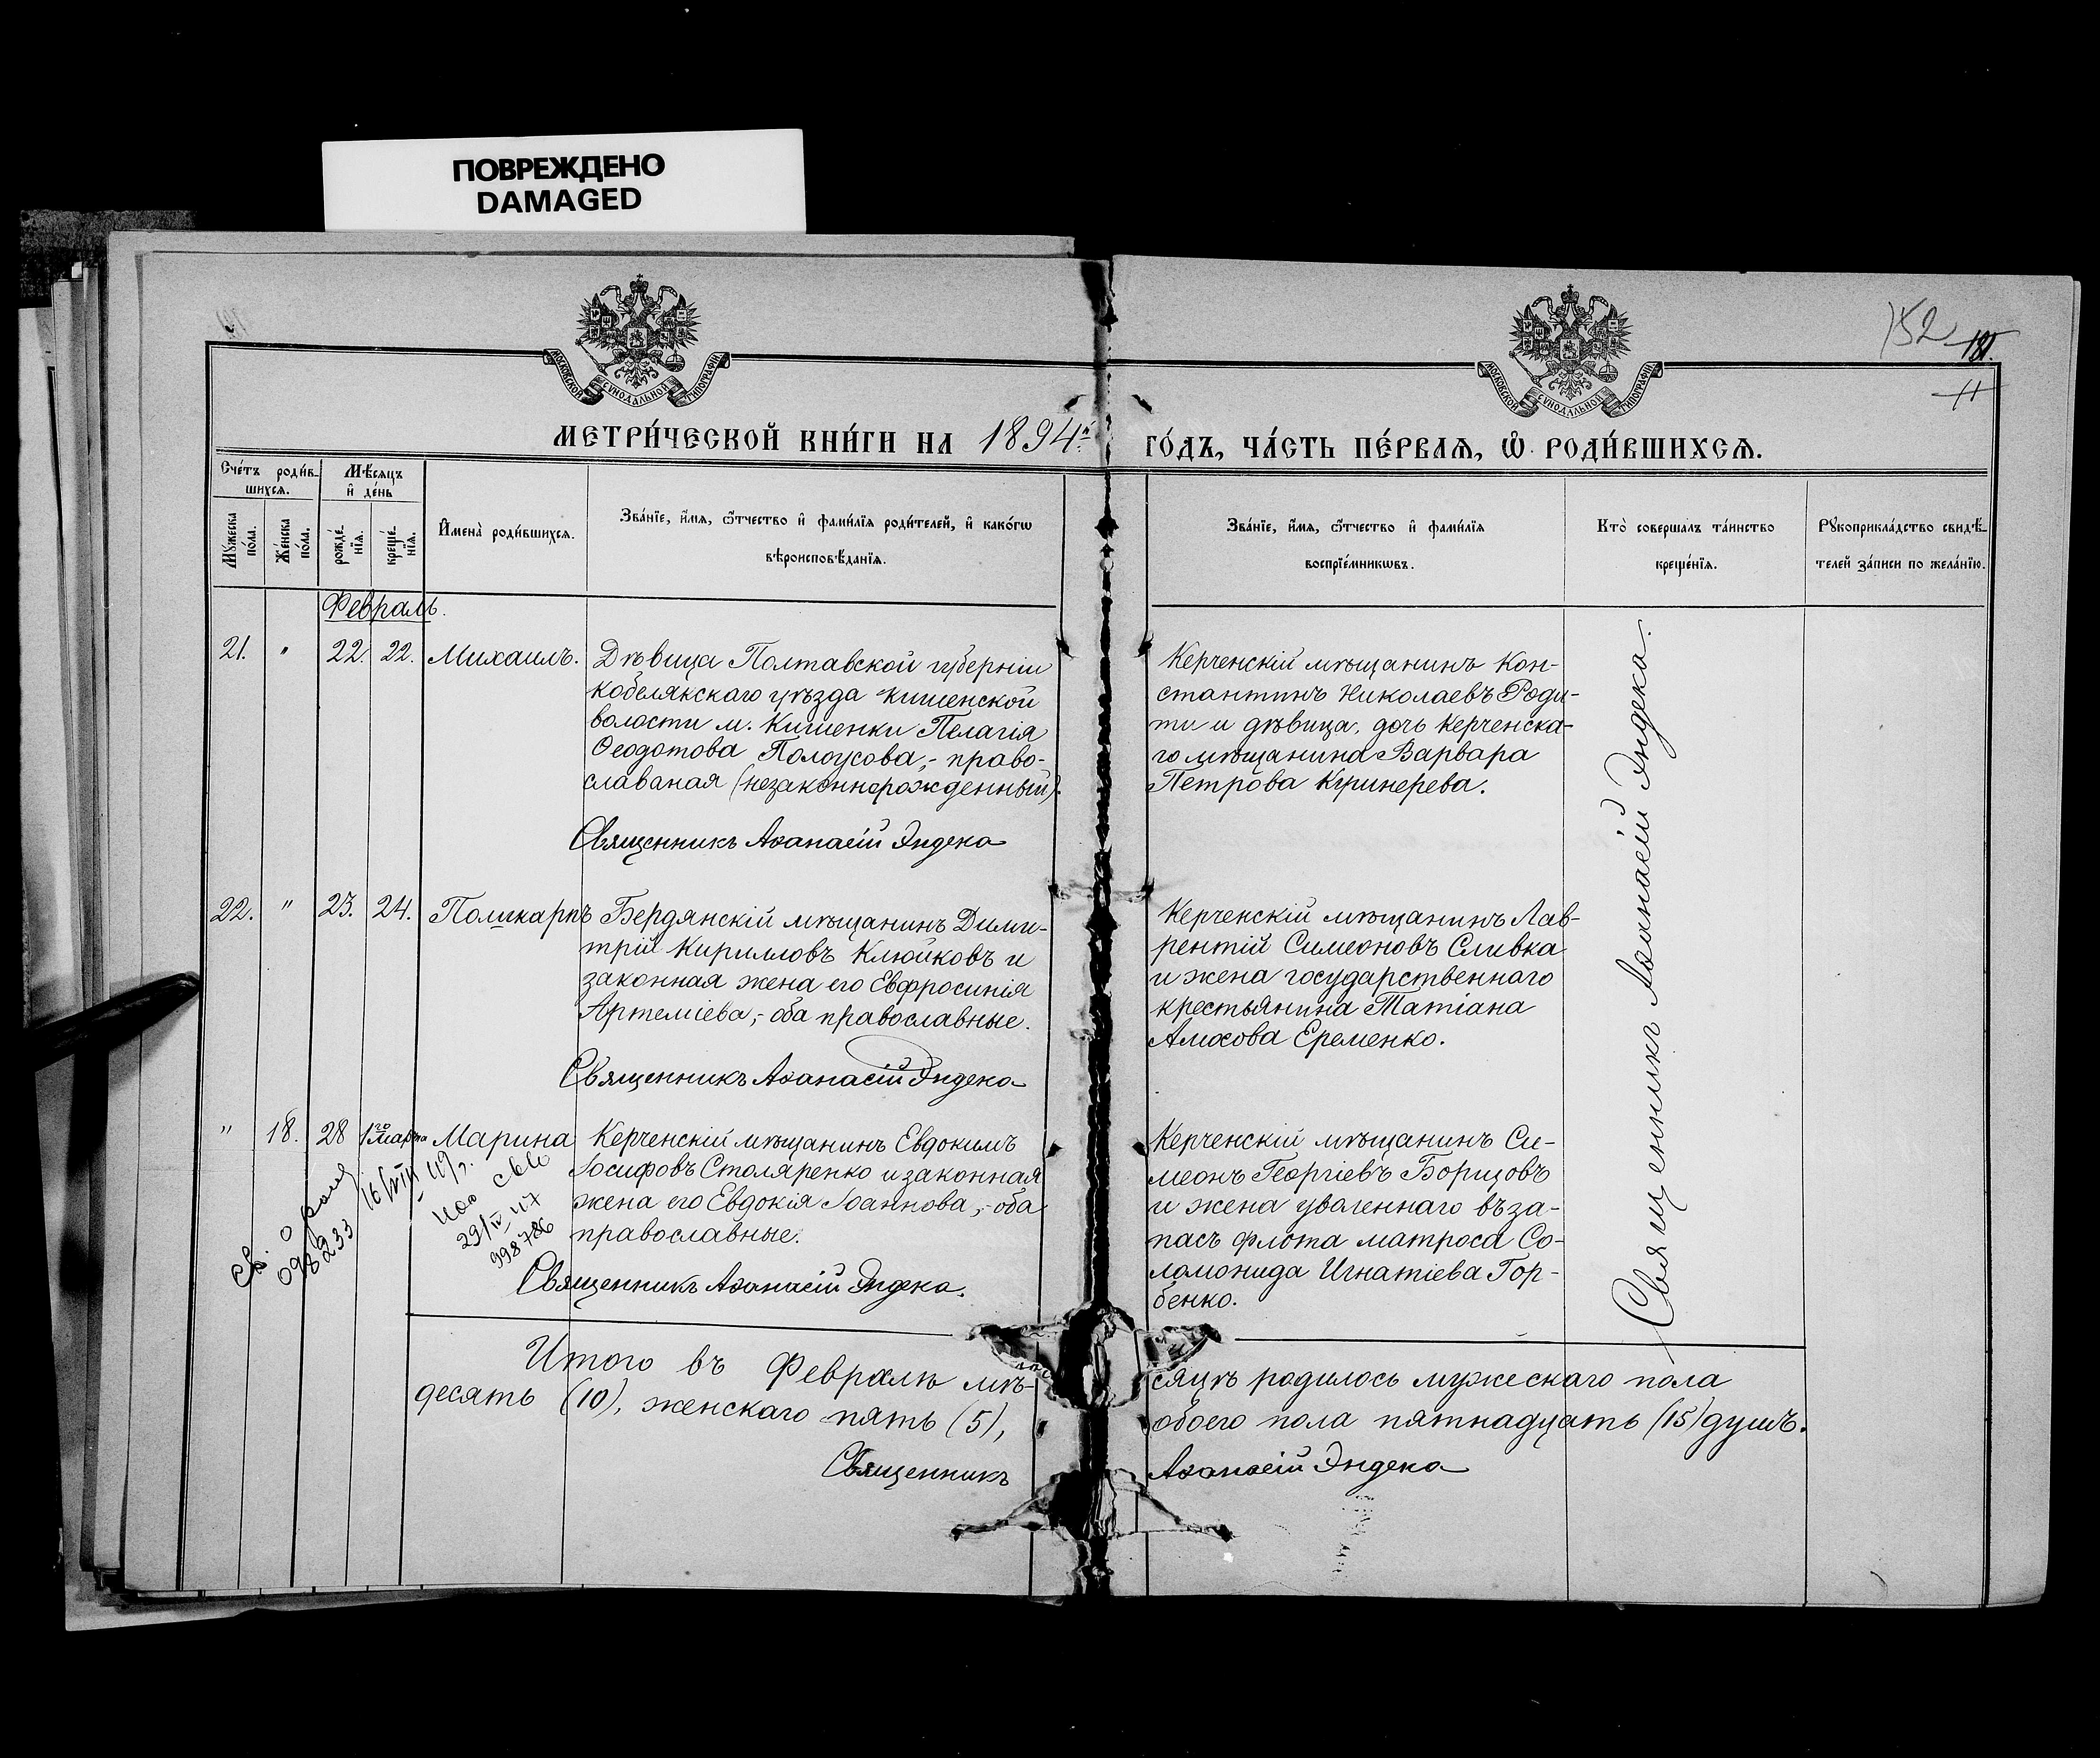 ПОВРЕЖДЕНО
DAMAGED
МОСКОВСКОЙ СѴНОДАЛЬНОЙ ТИПОГРАФІИ
МОСКОВСКОЙ СѴНОДАЛЬНОЙ ТИПОГРАФІИ
152
181.
МЕТРИ́ЧЕСКОЙ КНИ́ГИ НА 1894й
ГО́ДЪ, ЧА́СТЬ ПЕ́РВАѦ, Ѡ҆ РОДИ́ВШИХСѦ.
Сче́тъ роди́в-
шихсѧ.
Мѣ́сѧцъ
и҆ де́нь
Мꙋ́жеска
по́ла.
Же́нска
по́ла.
рожде́-
нїѧ.
креще́-
нїѧ.
И҆мена̀ роди́вшихсѧ.
Зва́нїе, и҆́мѧ, ѻ҆́тчество и҆ фами́лїѧ роди́телей, и҆ како́гѡ
вѣроисповѣ́данїѧ.
Зва́нїе, и҆́мѧ, ѻ҆́тчество и҆ фами́лїѧ
воспрїе́мникѡвъ.
Кто̀ соверша́лъ та́инство
креще́нїѧ.
Рꙋкоприкла́дство свидѣ́-
телей за́писи по жела́нїю.
Февраль.
21. " 22. 22. Михаилъ.
Дѣвица Полтавской губерніи
Кобелякскаго уѣзда Кишенской
волости м. Кишенки Пелагія
Ѳеодотова Полоусова,- право-
славаная (незаконнорожденный).
Священникъ Аѳанасій Эндека
Керченскій мѣщанинъ Кон-
стантинъ Николаевъ Роди-
ти и дѣвица, дочь Керченска-
го мѣщанина Варвара
Петрова Кушнерева.
22. " 23. 24. Поликарпъ
Бердянскій мѣщанинъ Дими-
трій Кирилловъ Клюйковъ и
законная жена его Евфросинія
Артеміева,- оба православные.
Священникъ Аѳанасій Эндека
Керченскій мѣщанинъ Лав-
рентій Симеоновъ Сливка
и жена государственнаго
крестьянина Татіана
Амосова Еременко.
" 18. 28 1го марта Марина
Керченскій мѣщанинъ Евдокимъ
Іосифовъ Столяренко и законная
жена его Евдокія Іоаннова,- оба
православные.
Священникъ Аѳанасій Эндека.
Керченскій мѣщанинъ Си-
меонъ Георгіевъ Борщовъ
и жена уволеннаго въ за-
пасъ флота матроса Со-
ломонида Игнатіева Гор-
бенко.
св. о рожд
098233
16/VIII 49г.
29/IV 47
998786
Священникъ Аѳанасій Эндека.
Итого въ Февралѣ мѣ-
сяцѣ родилось мужескаго пола
десять (10), женскаго пять (5),
обоего пола пятнадцать (15) душъ.
Священникъ
Аѳанасій Эндека